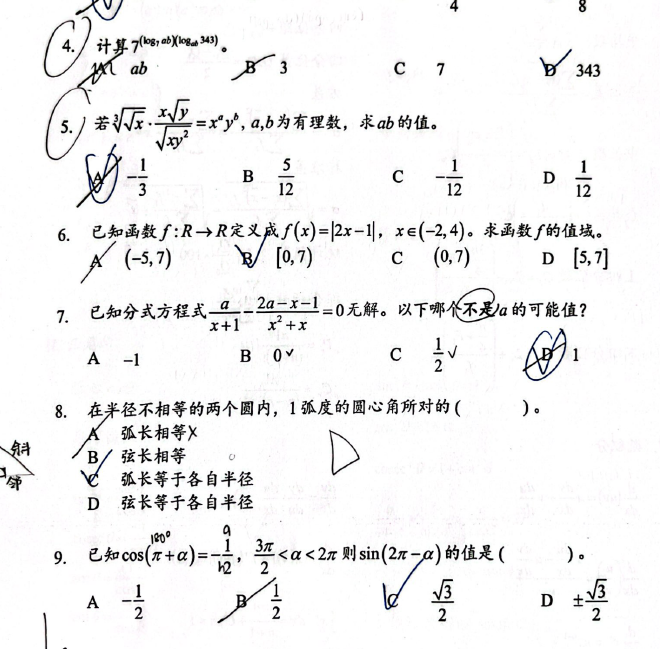 4 8
4. 计算7^{(log₇ ab)(log_{ab} 343)}。
A ab B 3 C 7 D 343
5. 若∛√x · x√y / √(xy²) = xᵃyᵇ, a,b为有理数，求ab的值。
A -1/3 B 5/12 C -1/12 D 1/12
6. 已知函数 f:R→R定义成f(x)=|2x-1|, x∈(-2,4)。求函数f的值域。
A (-5,7) B [0,7) C (0,7) D [5,7]
7. 已知分式方程式 a/(x+1) - (2a-x-1)/(x²+x) = 0无解。以下哪个不是a的可能值?
A -1 B 0 ✓ C 1/2 ✓ D 1
8. 在半径不相等的两个圆内，1弧度的圆心角所对的( )。
A 弧长相等 X
B 弦长相等
斜
C 弧长等于各自半径
邻
D 弦长等于各自半径
180°
9. 已知cos(π+α)=-1/2, 3π/2<α<2π 则sin(2π-α)的值是( )。
A -1/2 B 1/2 C √3/2 D ±√3/2